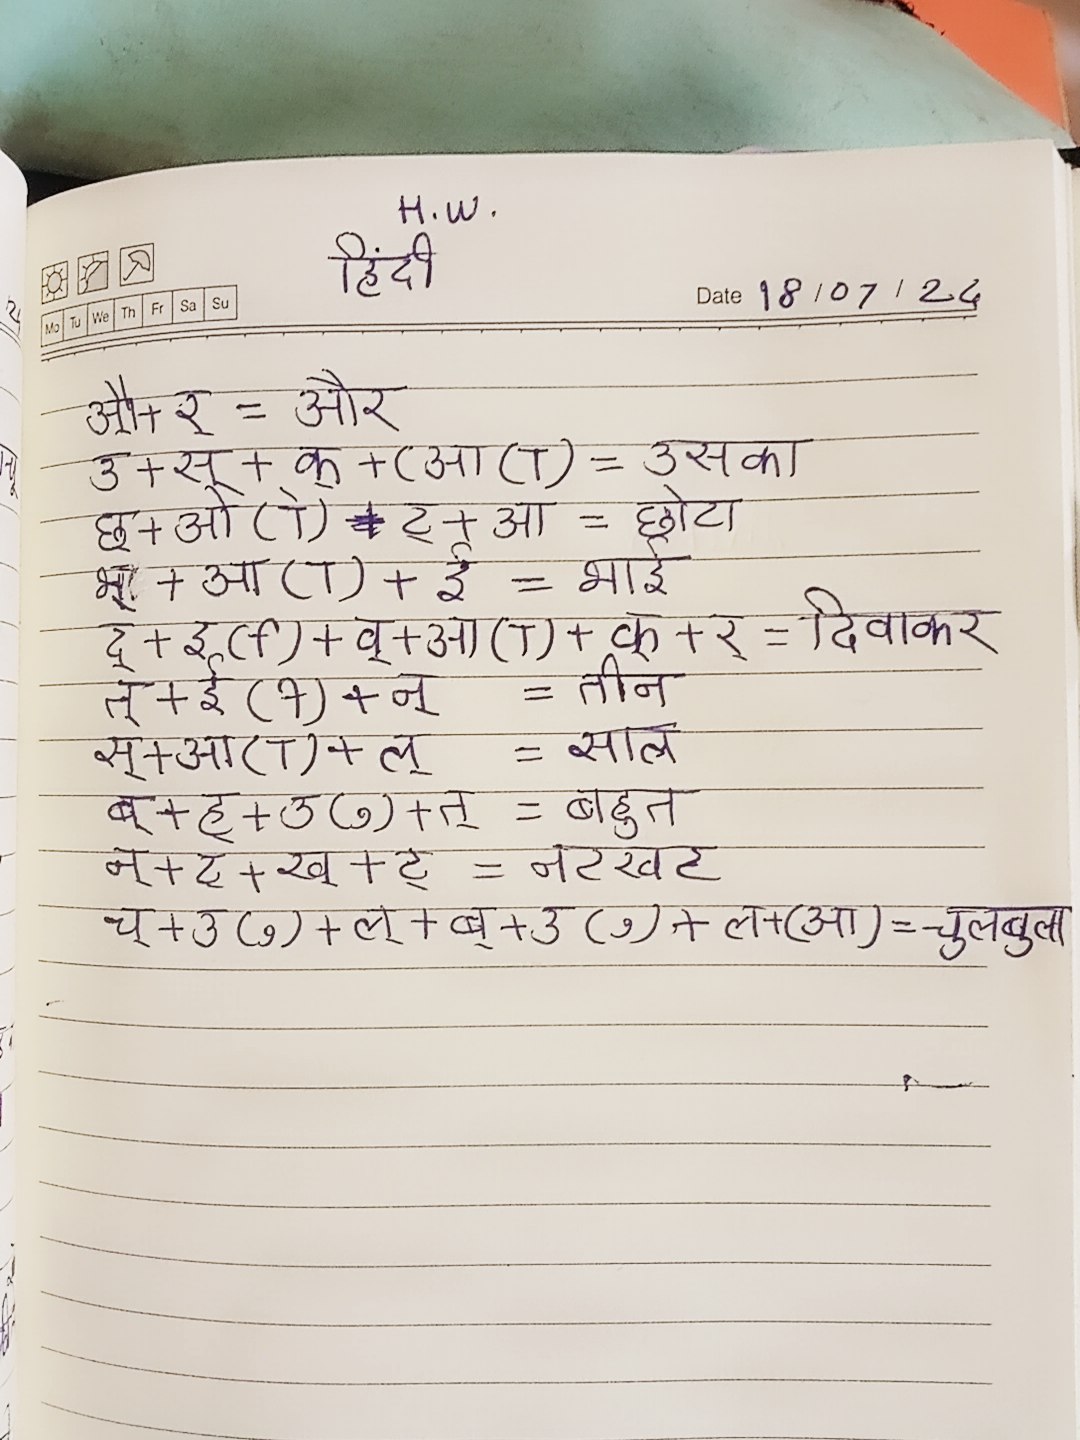 H.W.
हिंदी
Mo Tu We Th Fr Sa Su
Date 18/07/24
औ + र् = और
उ + स् + क् + (आ (ा) = उसका
छ् + ओ (ो) + ट् + आ = छोटा
भ् + आ (ा) + ई = भाई
द् + इ (ि) + व् + आ (ा) + क् + र् = दिवाकर
त् + ई (ी) + न् = तीन
स् + आ (ा) + ल् = साल
ब् + ह् + उ (ु) + त् = बहुत
न् + ट् + ख् + ट् = नटखट
च् + उ (ु) + ल् + ब् + उ (ु) + ल + (आ) = चुलबुला